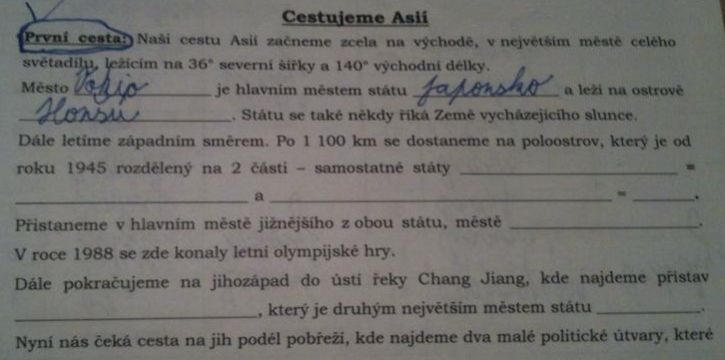 Cestujeme Asií
První cesta: Naši cestu Asií začneme zcela na východě, v největším městě celého
světadílu, ležícím na 36° severní šířky a 140° východní délky.
Město Tokio je hlavním městem státu Japonsko a leží na ostrově
Honšu. Státu se také někdy říká Země vycházejícího slunce.
Dále letíme západním směrem. Po 1 100 km se dostaneme na poloostrov, který je od
roku 1945 rozdělený na 2 části – samostatné státy ____________ =
____________ a ____________ = ______.
Přistaneme v hlavním městě jižnějšího z obou státu, městě ____________.
V roce 1988 se zde konaly letní olympijské hry.
Dále pokračujeme na jihozápad do ústí řeky Chang Jiang, kde najdeme přístav
____________, který je druhým největším městem státu ________.
Nyní nás čeká cesta na jih podél pobřeží, kde najdeme dva malé politické útvary, které